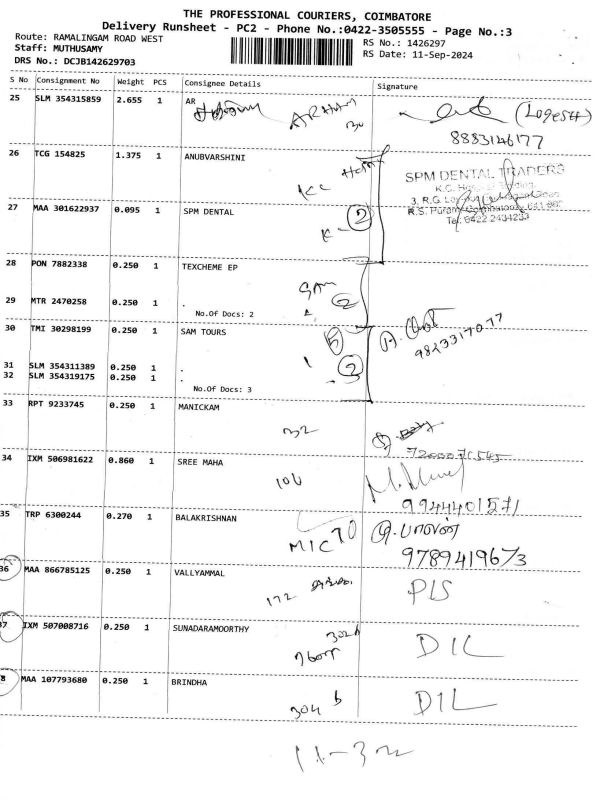 THE PROFESSIONAL COURIERS, COIMBATORE
Delivery Runsheet - PC2 - Phone No.:0422-3505555 - Page No.:3
Route: RAMALINGAM ROAD WEST
RS No.: 1426297
Staff: MUTHUSAMY
RS Date: 11-Sep-2024
DRS No.: DCJB142629703
S No Consignment No Weight PCS Consignee Details Signature
25 SLM 354315859 2.655 1 AR
ARHAM (Logesh)
8883146177
26 TCG 154825 1.375 1 ANUBVARSHINI
SPM DENTAL TRADERS
27 MAA 301622937 0.095 1 SPM DENTAL
Tel: 0422 2434233
2
28 PON 7882338 0.250 1 TEXCHEME EP
SAM
29 MTR 2470258 0.250 1 .
2
No.Of Docs: 2
30 TMI 30298199 0.250 1 SAM TOURS
5
9823317077
31 SLM 354311389 0.250 1 .
32 SLM 354319175 0.250 1 .
No.Of Docs: 3
33 RPT 9233745 0.250 1 MANICKAM
32
34 IXM 506981622 0.860 1 SREE MAHA
106
9944401571
35 TRP 6300244 0.270 1 BALAKRISHNAN
MIC 70
பாலன்
9789419673
36 MAA 866785125 0.250 1 VALLYAMMAL
172
PLS
37 IXM 507008716 0.250 1 SUNADARAMOORTHY
302b
DIL
8 MAA 107793680 0.250 1 BRINDHA
304 b
DIL